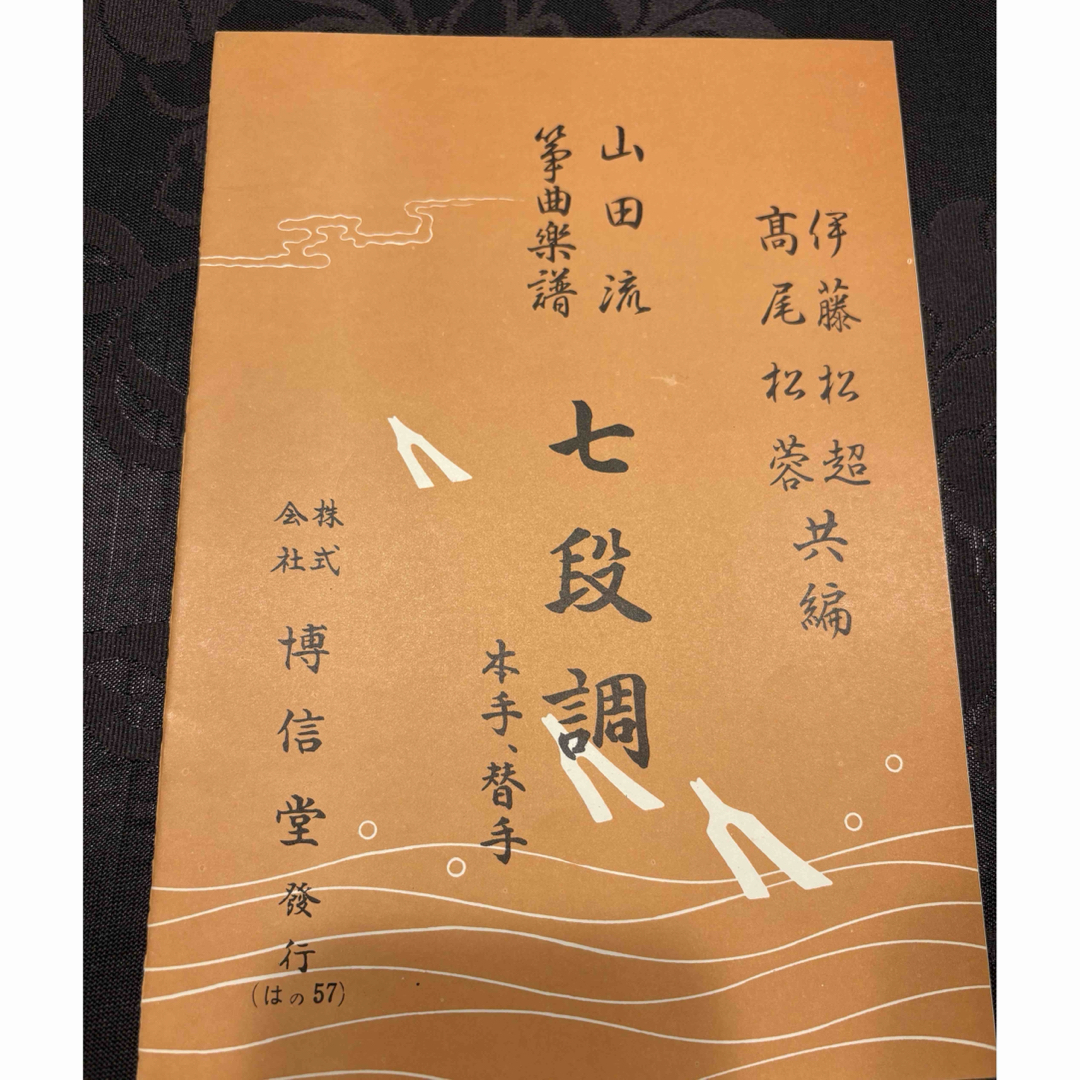 伊藤松超
髙尾松蓉
共編
山田流
箏曲楽譜
七段調
本手、替手
株式
会社
博信堂發行
(はの57)